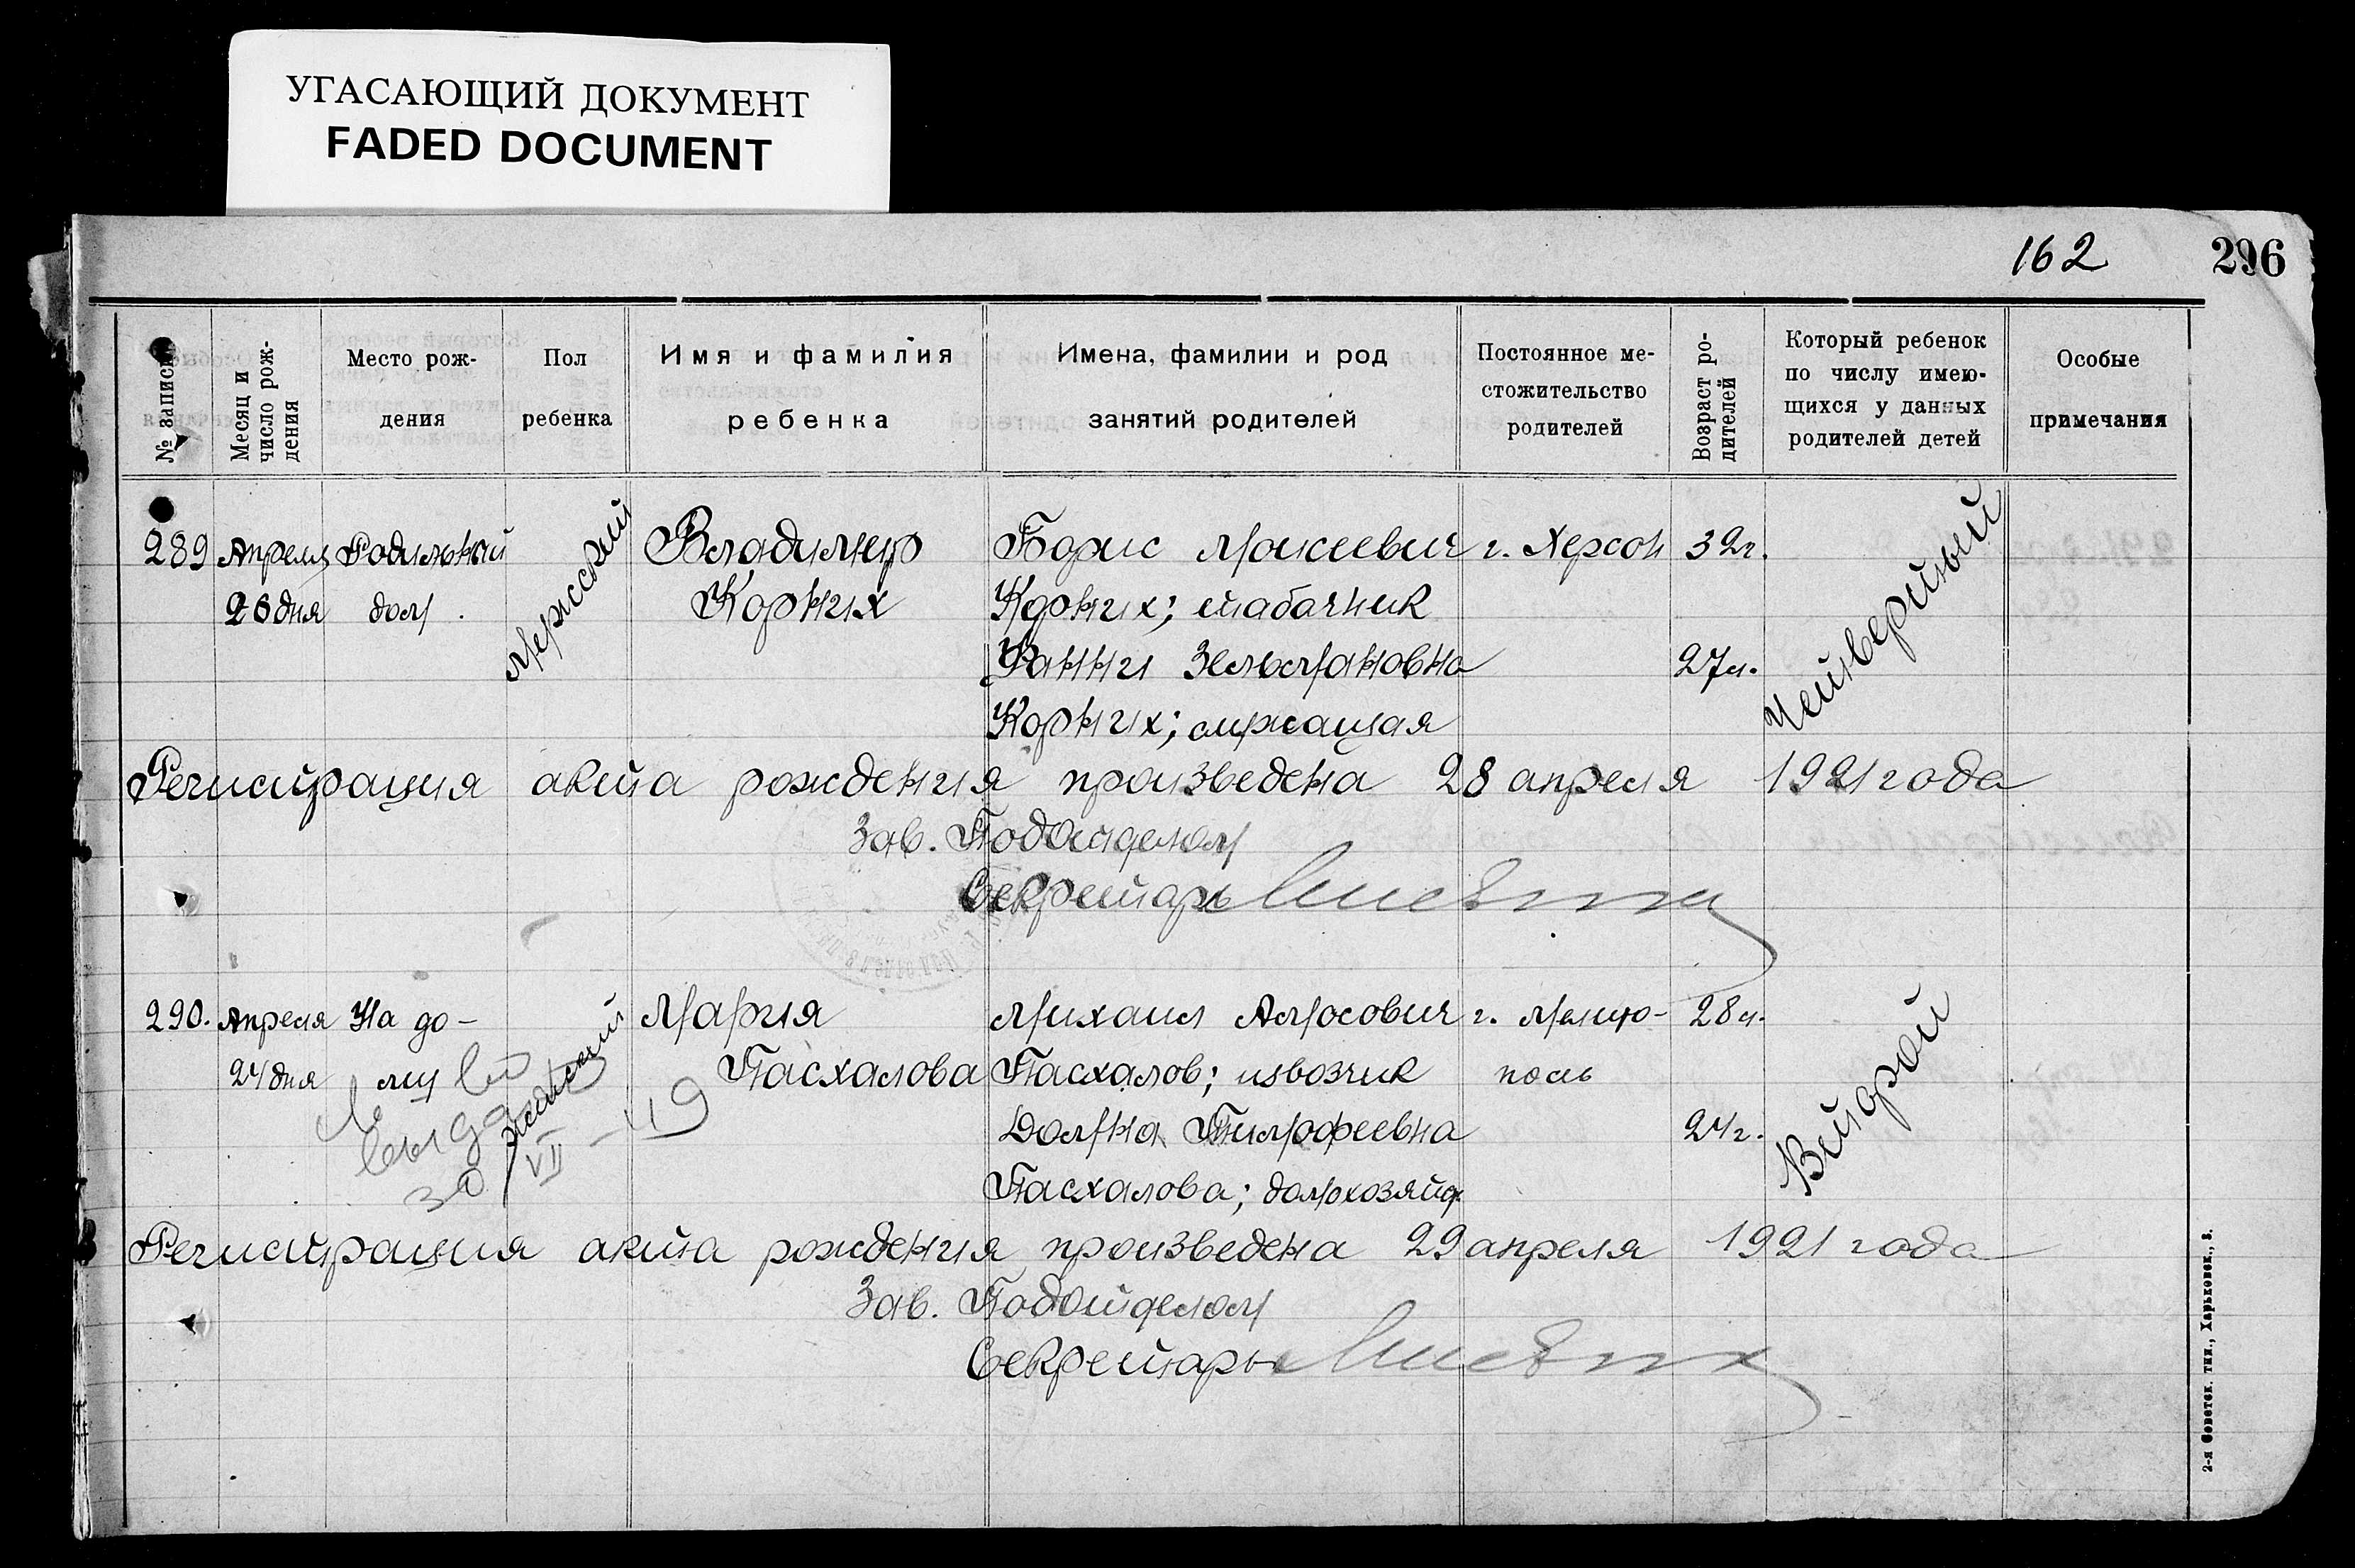 УГАСАЮЩИЙ ДОКУМЕНТ
FADED DOCUMENT
162 296
№ записи
Месяц и число рож-дения
Место рож-
дения
Пол
ребенка
Имя и фамилия
ребенка
Имена, фамилии и род
занятий родителей
Постоянное ме-
стожительство
родителей
Возраст ро-
дителей
Который ребенок
по числу имею-
щихся у данных
родителей детей
Особые
примечания
289 Апреля Родильный мужской Владимир Борис Моисеевич г. Херсон 32г. Четвертый
26 дня дом. Корних Корних; табачник
Фанни Зельмановна 27л.
Корних; служащая
Регистрация акта рождения произведена 28 апреля 1921 года
Зав. Подотделом
Секретарь
290. Апреля На до- женский Мария Михаил Амосович г. Мелито- 28л. Второй
24 дня му Пасхалова Пасхалов; извозчик поль
Домна Тимофеевна 24г.
Пасхалова; домохозяйк
выда
за VII - 49
Регистрация акта рождения произведена 29 апреля 1921 года
Зав. Подотделом
Секретарь
2-я Советск. тип., Харьковск., 3.